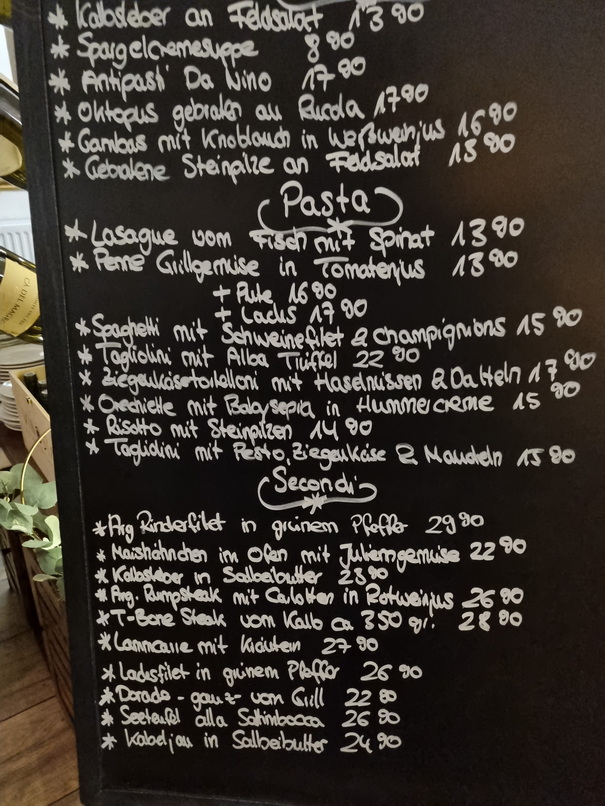 * Kalbsleber an Feldsalat 13 90
* Spargelcremesuppe 8 90
* Antipasti Da Nino 17 90
* Oktopus gebraten auf Rucola 17 90
* Gambas mit Knoblauch in Weißweinjus 16 90
* Gebratene Steinpilze an Feldsalat 13 90
Pasta
* Lasagne vom Fisch mit Spinat 13 90
* Penne Grillgemüse in Tomatenjus 13 90
+ Pute 16 90
+ Lachs 17 90
* Spaghetti mit Schweinefilet & Champignons 15 90
* Tagliolini mit Alba Trüffel 22 90
* Ziegenkäsetortelloni mit Haselnüssen & Datteln 17 90
* Orechiette mit Babysepia in Hummercreme 15 90
* Risotto mit Steinpilzen 14 90
* Tagliolini mit Pesto, Ziegenkäse & Mandeln 15 90
Secondi
* Arg Rinderfilet in grünem Pfeffer 29 90
* Maishähnchen im Ofen mit Julienngemüse 22 90
* Kalbsleber in Salbeibutter 23 90
* Arg. Rumpsteak mit Carlotten in Rotweinjus 26 90
* T-Bone Steak vom Kalb ca 350 gr. 28 90
* Lammcarre mit Kräutern 27 90
* Lachsfilet in grünem Pfeffer 26 90
* Dorade - ganz vom Grill 22 90
* Seeteufel alla Saltimbocca 26 90
* Kabeljau in Salbeibutter 24 90
CA DEL MAGRO